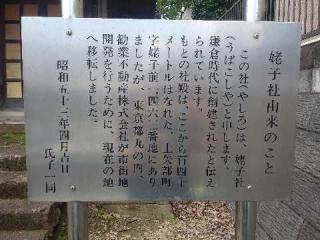 姥子社由来のこと
この社(やしろ)は、姥子社
(うばこしや)と申します。
鎌倉時代に創建されたと伝え
られています。
もとの社殿は、ここから百四十
メートルはなれた、上矢部町
字姥子前二四六三番地にあり
ましたが、東京都丸の内、
勧業不動産株式会社が市街地
開発を行うために、現在の地
へ移転しました。
昭和五十三年四月吉日
氏子一同